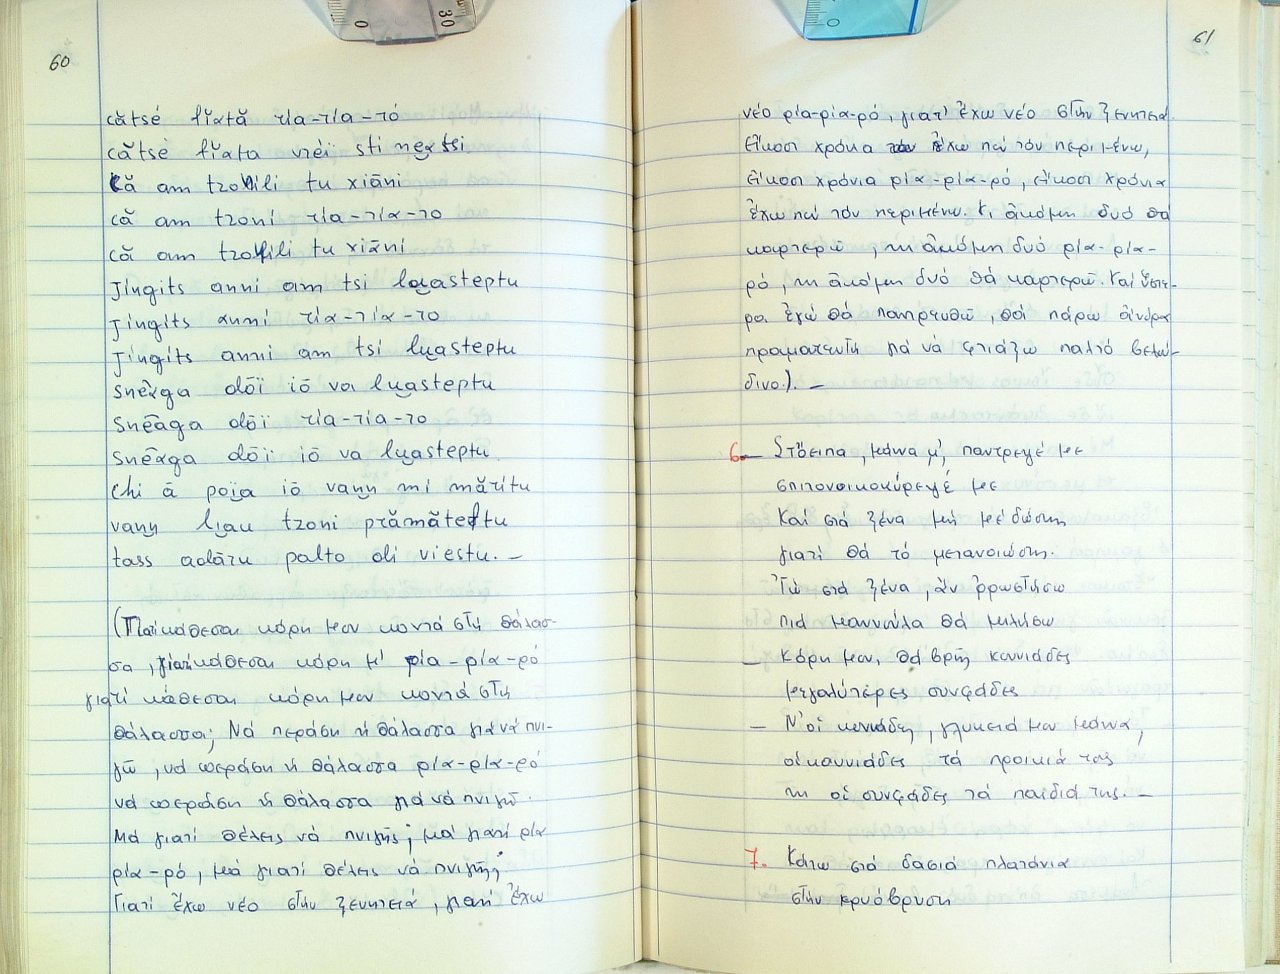 60
cătsé fĭată ría-ría-ró
cătsé fĭata vréi sti neatsi
Că am tzonili tu xiāni
că am tzoni ría-ría-ro
că am tzonili tu xiāni
Jingits anni am tsi luasteptu
jingits anni ría-ría-ro
jingits anni am tsi luasteptu
Sneāga dōi iō va luasteptu
Sneāga dōi ría-ría-ro
Sneāga dōi iō va luasteptu
Chi ā poia iō vanu mi măritu
vanu liau tzoni prămăteftu
tass adāru palto di viestu. –
(Γιατί κάθεσαι κόρη μου κοντά στη θάλασ-
σα, γιατί κάθεσαι κόρη μ' ρία-ρία-ρό
γιατί κάθεσαι κόρη μου κοντά στη
θάλασσα; Νά περάση ἡ θάλασσα γιά νά πνι-
γῶ, νά περάση ἡ θάλασσα ρία-ρία-ρό
νά περάση ἡ θάλασσα γιά νά πνιγῶ.
Μά γιατί θέλεις νά πνιγῆς; μά γιατί ρία
ρία-ρό, μά γιατί θέλεις νά πνιγῆς;
Γιατί ἔχω νέο στήν ξενητειά, γιατί ἔχω
61
νέο ρία-ρία-ρό, γιατί ἔχω νέο στήν ξενητειά.
Εἴκοσι χρόνια ἔχω πού τόν περιμένω,
εἴκοσι χρόνια ρία-ρία-ρό, εἴκοσι χρόνια
ἔχω πού τόν περιμένω. Κι ἀκόμη δυό θά
καρτερῶ, κι ἀκόμη δυό ρία-ρία-
ρό, κι ἀκόμη δυό θά καρτερῶ. Καί ὕστε-
ρα ἐγώ θά παντρευθῶ, θά πάρω ἄνδρα
πραματευτή γιά νά φτιάξω παλτό βελού-
δινο.). –
6. – Στὄειπα, μάνα μ', παντρεψέ με
σπιτονοικοκύρεψέ με
Καί στά ξένα μή μέ δώσης
γιατί θά τό μετανοιώσης.
'Γώ στά ξένα, ἄν ἀρρωστήσω
πιά μαννούλα θά μιλήσω
– Κόρη μου, θά βρῆς κουνιάδες
μεγαλύτερες συνφάδες
– Ν'οἱ κουνιάδες, γλυκειά μου μάνα,
οἱ κουνιάδες τά προικιά τους
κι οἱ συνφάδες τά παιδιά της. –
7. Κάτω στά δασιά πλατάνια
στήν κρυόβρυση